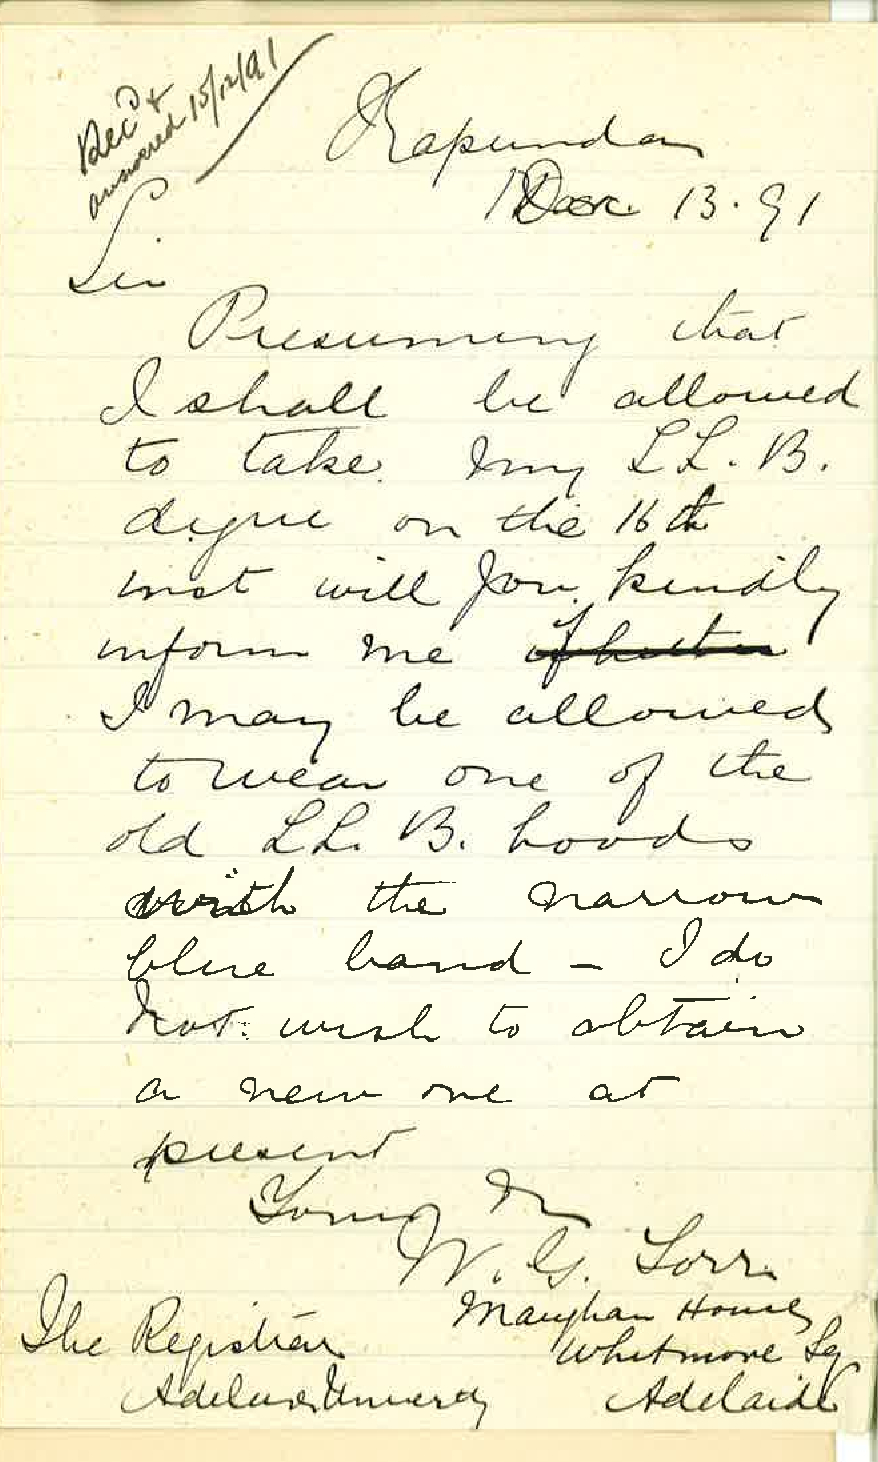 Recd &
answered 15/12/91
Kapunda
Dec. 13. 91
Sir
Presuming that
I shall be allowed
to take my LL. B.
degree on the 16th
inst will you kindly
inform me if
I may be allowed
to wear one of the
old LL. B. hoods
with the narrow
blue band - I do
not wish to obtain
a new one at
present
Yours
W. G. Torr
Maughan House
Whitmore Sq
Adelaide
The Registrar
Adelaide University